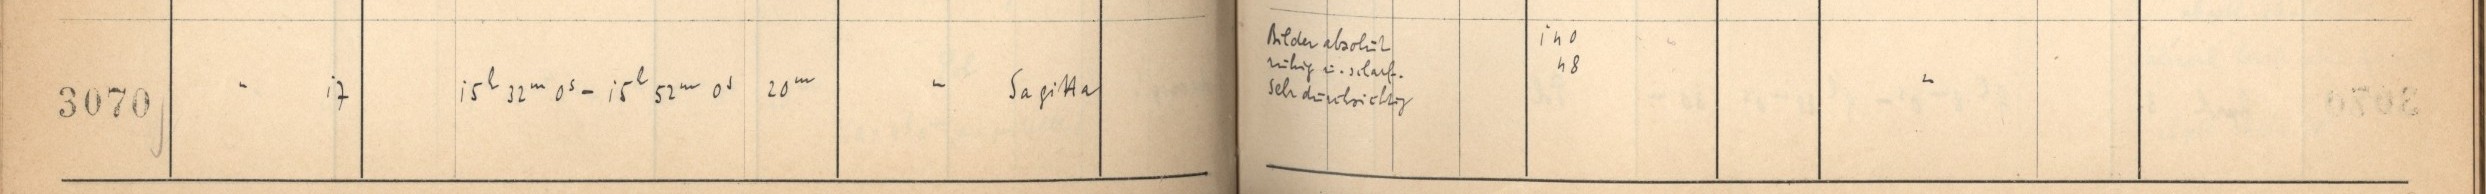 3070 " i7 i5h 32m 0s - i5h 52m 0s 20m " Sagitta
Bilder absolut
ruhig u. scharf.
Sehr durchsichtig
i n 0
n 8
"